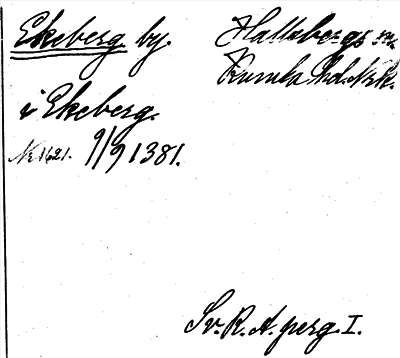 Ekeberg by.
Hallsbergs sn.
Kumla hd. Nrk.
i Ekeberg.
Nr 1621. 9/9 1381.
Sv. R. A. perg. I.